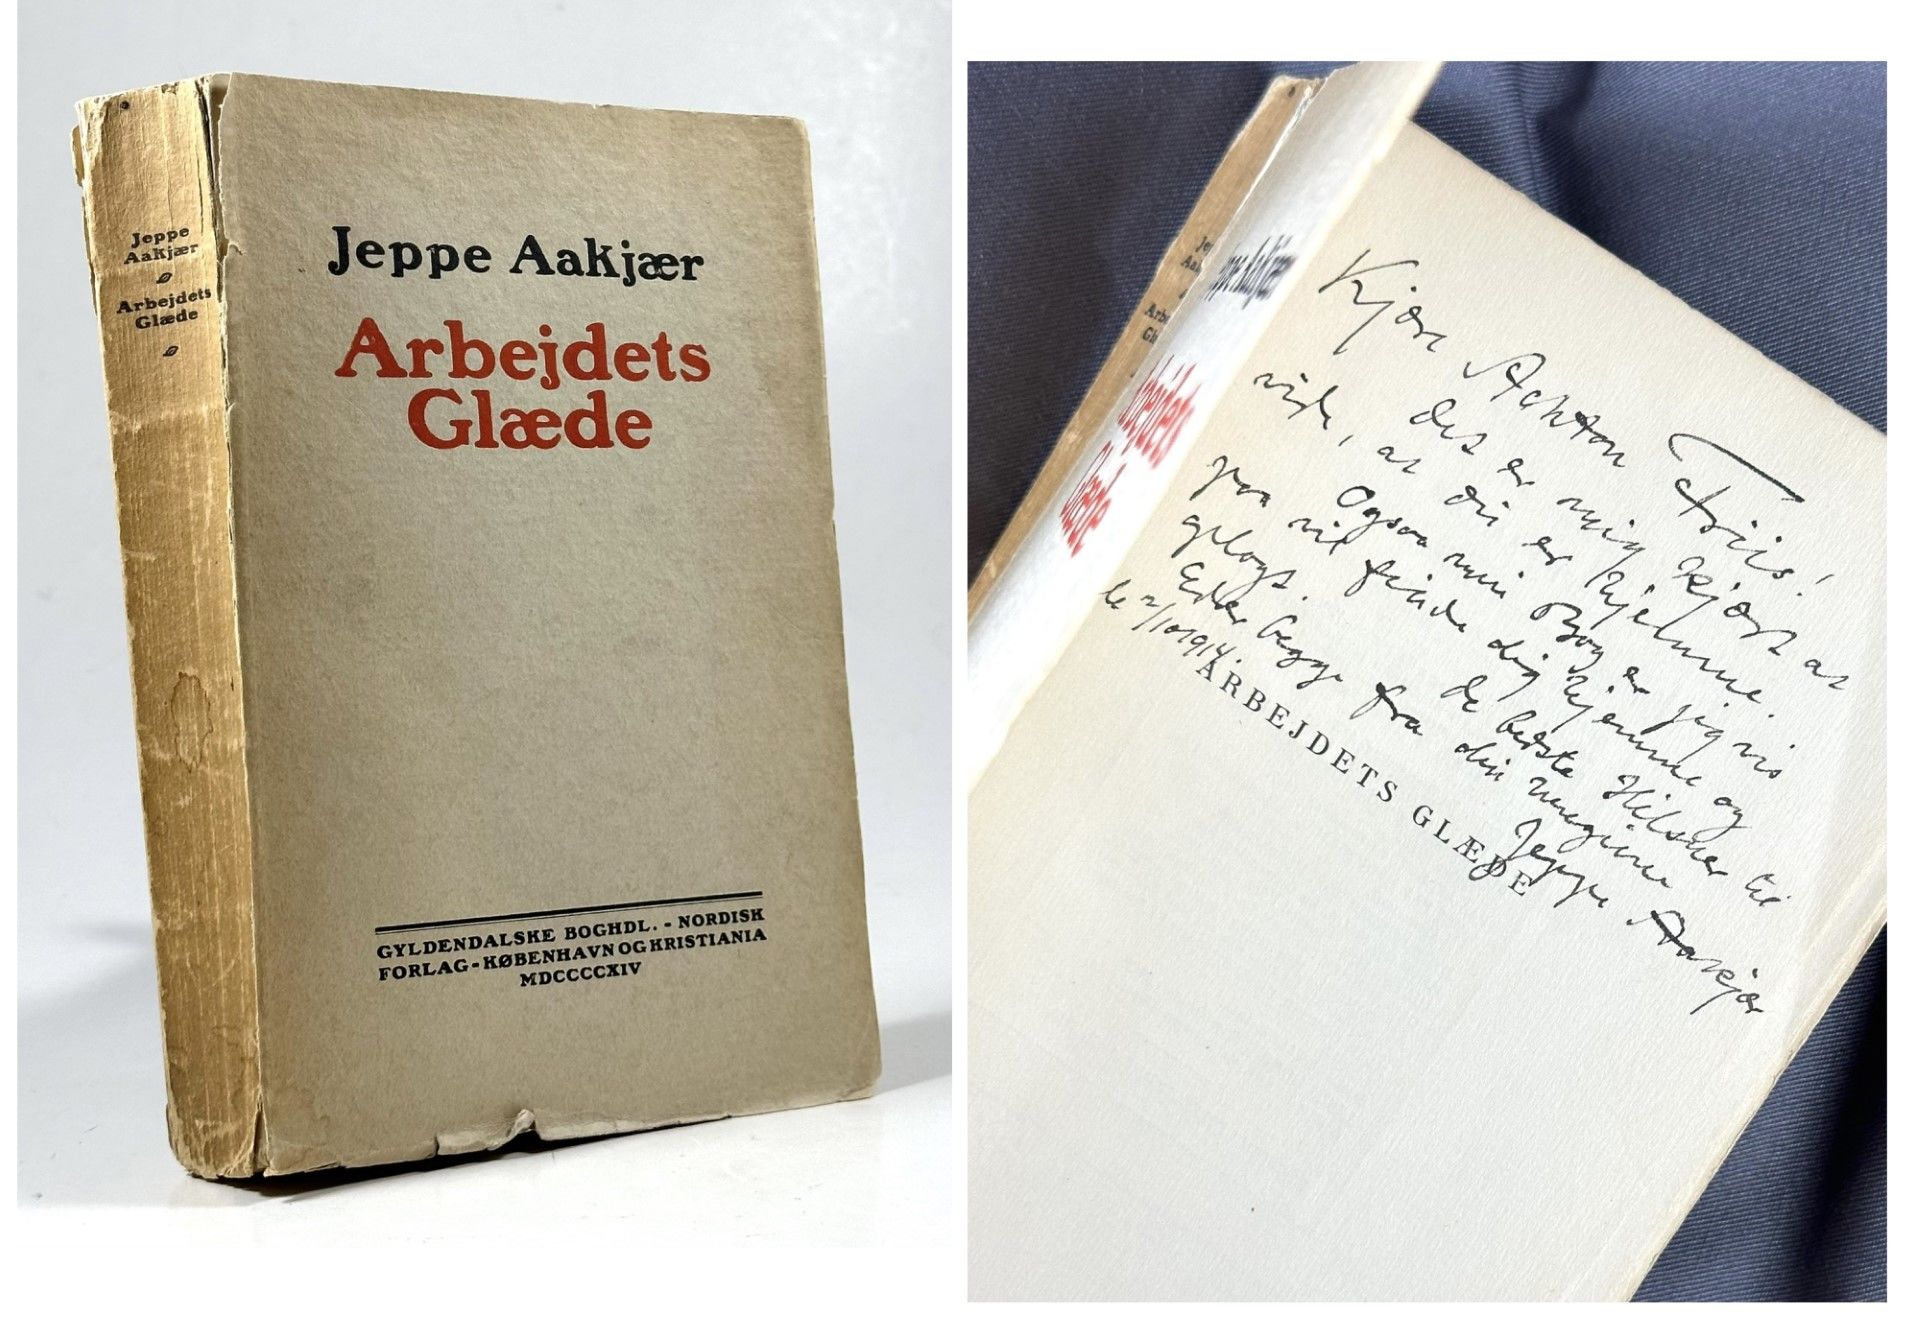 Jeppe
Aakjær
Arbejdets
Glæde
Jeppe Aakjær
Arbejdets
Glæde
GYLDENDALSKE BOGHDL. - NORDISK
FORLAG - KØBENHAVN OG KRISTIANIA
MDCCCCXIV
Kjære Achton Friis!
det er mig kjært at
vide, at du er hjemme.
Ogsaa min Bog er jeg vis
paa vil finde dig hjemme og
De bedste Hilsner til
Eder begge fra din
2/10 1914.
Jeppe Aakjær
ARBEJDETS GLÆDE